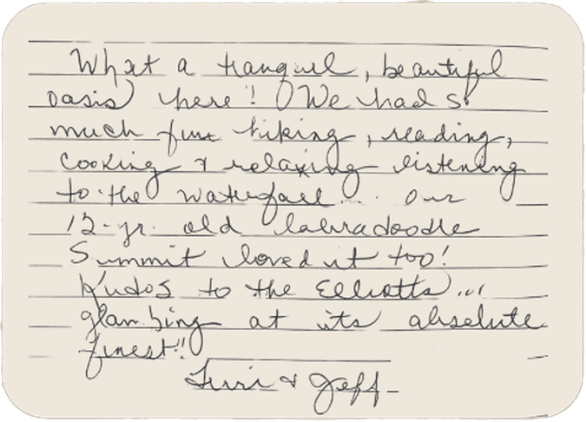 What a tranquil, beautiful
oasis here! We had s
much fun hiking, reading,
cooking & relaxing listening
to the waterfall... our
12-yr. old labradoodle
Summit loved it too!
Kudos to the Elliotts...
glamping at its absolute
finest!!
& Jeff-